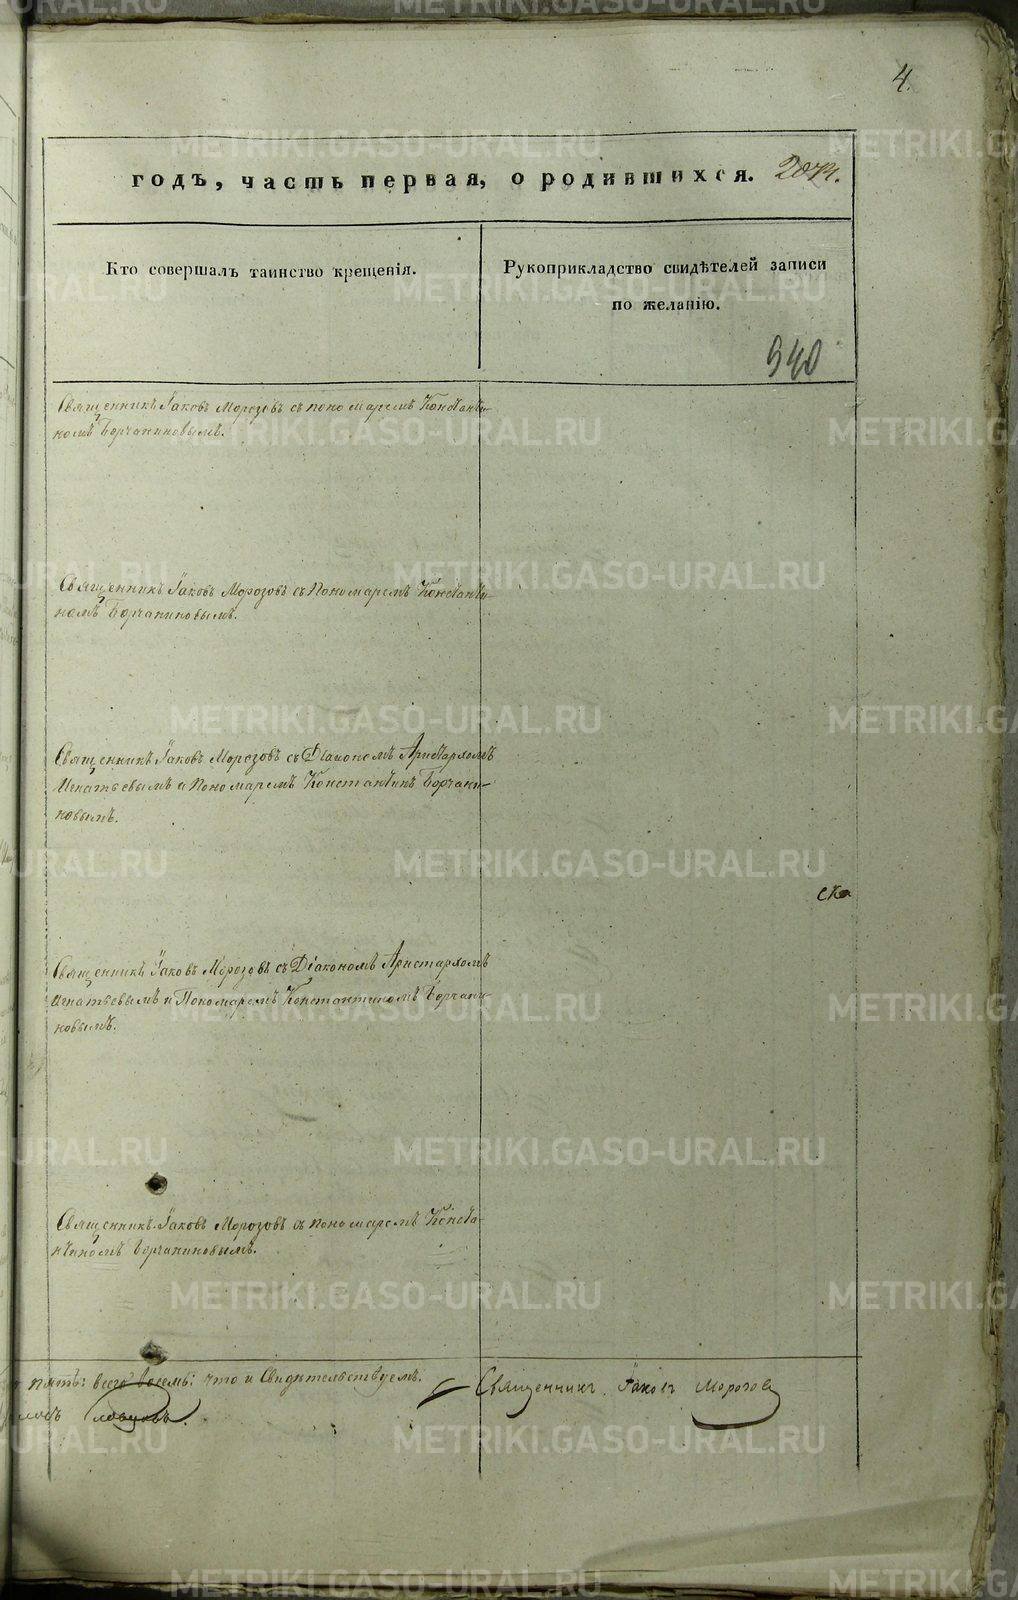 4.
годъ, часть первая, о родившихся.
Кто совершалъ таинство крещенія.
Рукоприкладство свидѣтелей записи
по желанію.
940
Священникъ Іаковъ Морозовъ съ пономаремъ Константи-
номъ Борчаниновымъ.
Священникъ Іаковъ Морозовъ съ Пономаремъ Константи-
номъ Борчаниновымъ.
Священникъ Іаковъ Морозовъ съ Діакономъ Аристархомъ
Игнатьевымъ и Пономаремъ Константинъ Борчани-
новымъ.
ска
Священникъ Іаковъ Морозовъ съ Діакономъ Аристархомъ
Игнатьевымъ и Пономаремъ Константиномъ Борчани-
новымъ.
Священникъ Іаковъ Морозовъ съ пономаремъ Конста-
нтиномъ Борчаниновымъ.
пять: всего восемь: что и Свидѣтельствуемъ.
Священникъ Іаковъ Морозовъ
METRIKI.GASO-URAL.RU